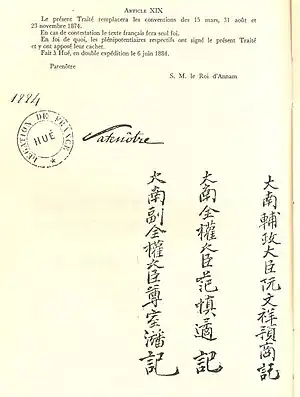 ARTICLE XIX
Le présent Traité remplacera les conventions des 15 mars, 31 août et
23 novembre 1874.
En cas de contestation le texte français fera seul foi.
En foi de quoi, les plénipotentiaires respectifs ont signé le présent Traité
et y ont apposé leur cachet.
Fait à Hué, en double expédition le 6 juin 1884.
Patenôtre
S. M. le Roi d'Annam
1884
LÉGATION DE FRANCE
HUÉ
Patenôtre
大南輔政大臣阮文祥預商記
大南全權大臣范慎遹記
大南副全權大臣尊室濳記